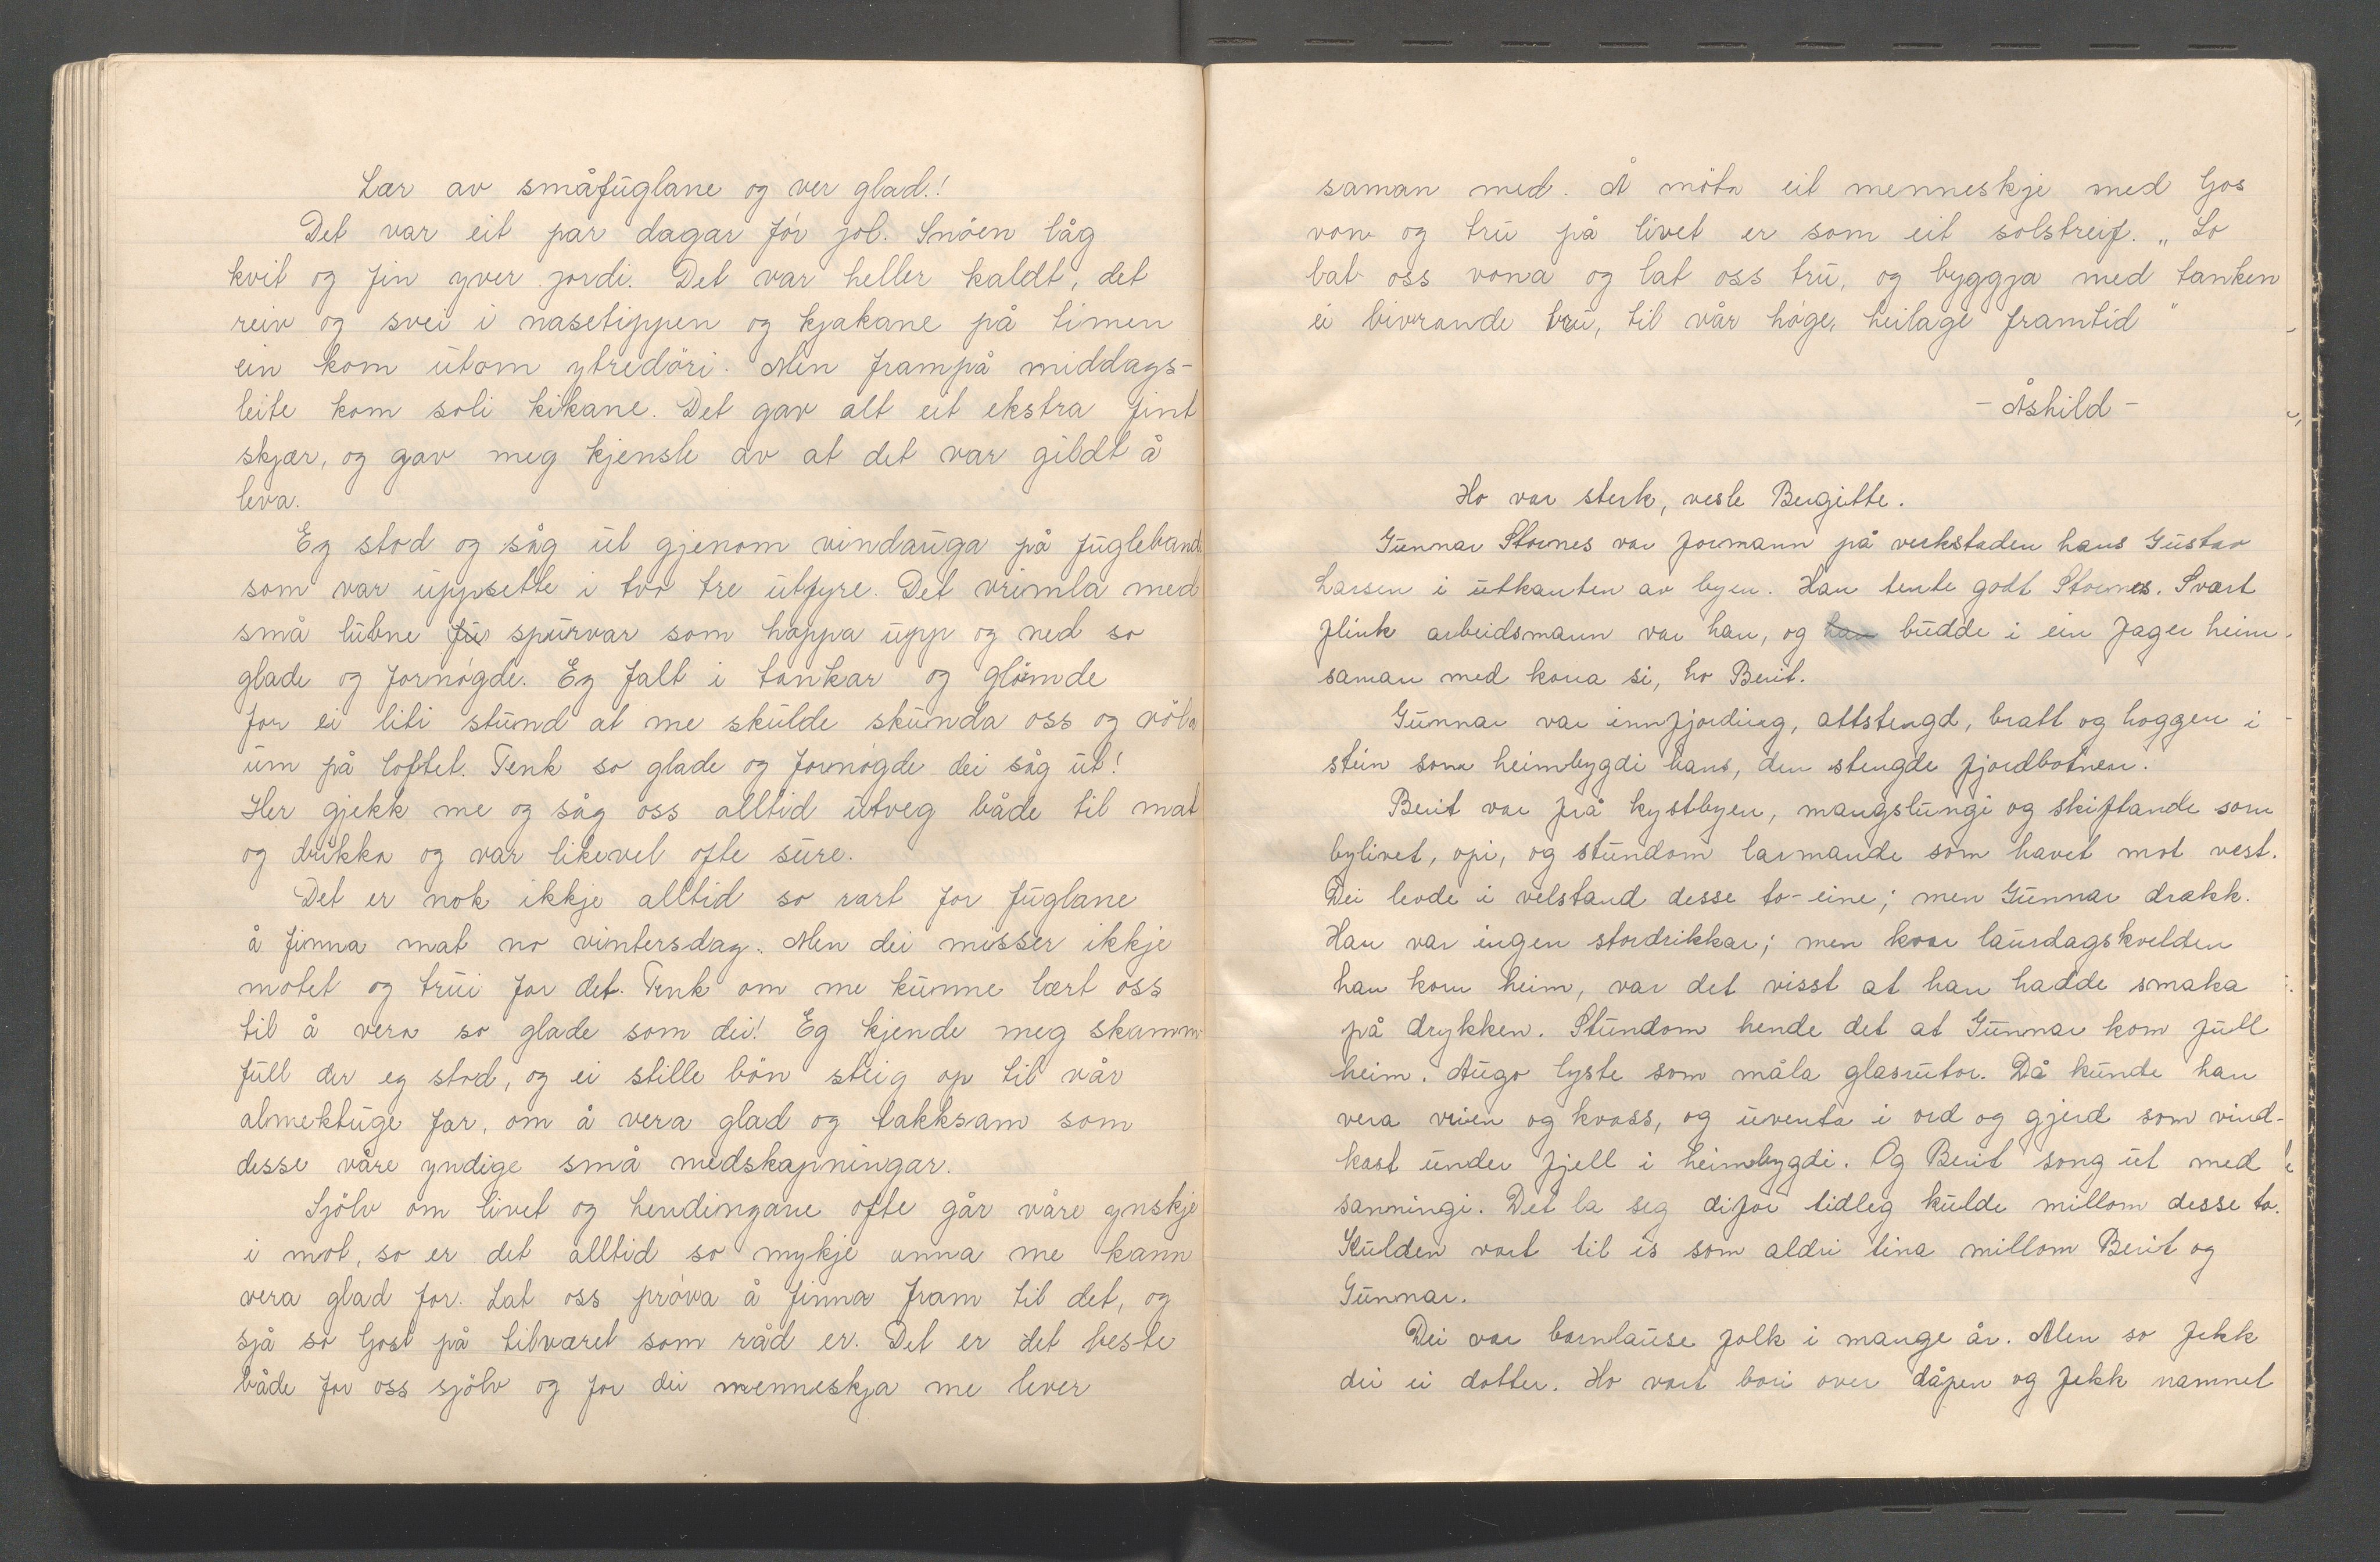 Lær av småfuglane og ver glad.!
Det var eit par dagar før jol. Snöen låg
kvit og fin yver jordi. Det var heller kaldt, det
reiv og svei i nasetippen og kjakane på timen
ein kom utom ytredöri. Men frampå middags-
leite kom soli kikane. Det gav alt eit ekstra fint
skjær, og gav meg kjensle av at det var gildt å
leva.
Eg stod og såg ut gjenom vindauga på fugleband
som var uppsette i tvo tre utfyre. Det vrimla med
små lubne spurvar som hoppa upp og ned so
glade og fornøgde. Eg falt i tankar og glömde
for ei liti stund at me skulde skunda oss og röla
um på loftet. Tenk so glade og fornøgde dei såg ut!
Her gjekk me og såg oss alltid utveg både til mat
og drikka og var likevel ofte sure.
Det er nok ikkje alltid so rart for fuglane
å finna mat no vintersdag. Men dei misser ikkje
motet og trui for det. Tenk om me kunne lært oss
til å vera so glade som dei! Eg kjende meg skamm-
full der eg stod, og ei stille bön steig op til vår
almektuge far, om å vera glad og takksam som
desse våre yndige små medskapningar.
Sjölv om livet og hendingane ofte går våre ynskje
i mot, so er det alltid so mykje anna me kann
vera glad for. Lat oss prøva å finna fram til det, og
sjå so ljost på tilværet som råd er. Det er det beste
både for oss sjölv og for dei menneskja me lever
saman med. Å möta eit menneskje med ljos
von og tru på livet er som eit solstreif. „ So
lat oss vona og lat oss tru, og byggja med tanken
ei bivrande bru, til vår høge, heilage framtid "
- Åshild -
Ho var sterk, vesle Bergitte.
Gunnar Stornes var formann på verkstaden hans Gustav
Larsen i utkanten av byen. Han tente godt Stornes. Svært
flink arbeidsmann var han, og han budde i ein fager heim
saman med kona si, ho Berit.
Gunnar var innfjording, attstengd, bratt og hoggen i
stein som heimbygdi hans, den stengde fjordbotnen.
Berit var frå kystbyen, mangslungi og skiftande som
bylivet, opi, og stundom larmande som havet mot vest.
Dei levde i velstand desse to-eine; men Gunnar drakk.
Han var ingen stordrikkar; men kvar laurdagskvelden
han kom heim, var det visst at han hadde smaka
på drykken. Stundom hende det at Gunnar kom full
heim. Augo lyste som måla glasrutor. Då kunde han
vera vrien og kvass, og uventa i ord og gjerd som vind-
kast under fjell i heimbygdi. Og Berit song ut med
sanningi. Det la seg difor tidleg kulde millom desse to.
Kulden vart til is som aldri tina millom Berit og
Gunnar.
Dei var barnlause folk i mange år. Men so fekk
dei ei dotter. Ho vart bori over dåpen og fekk namnet